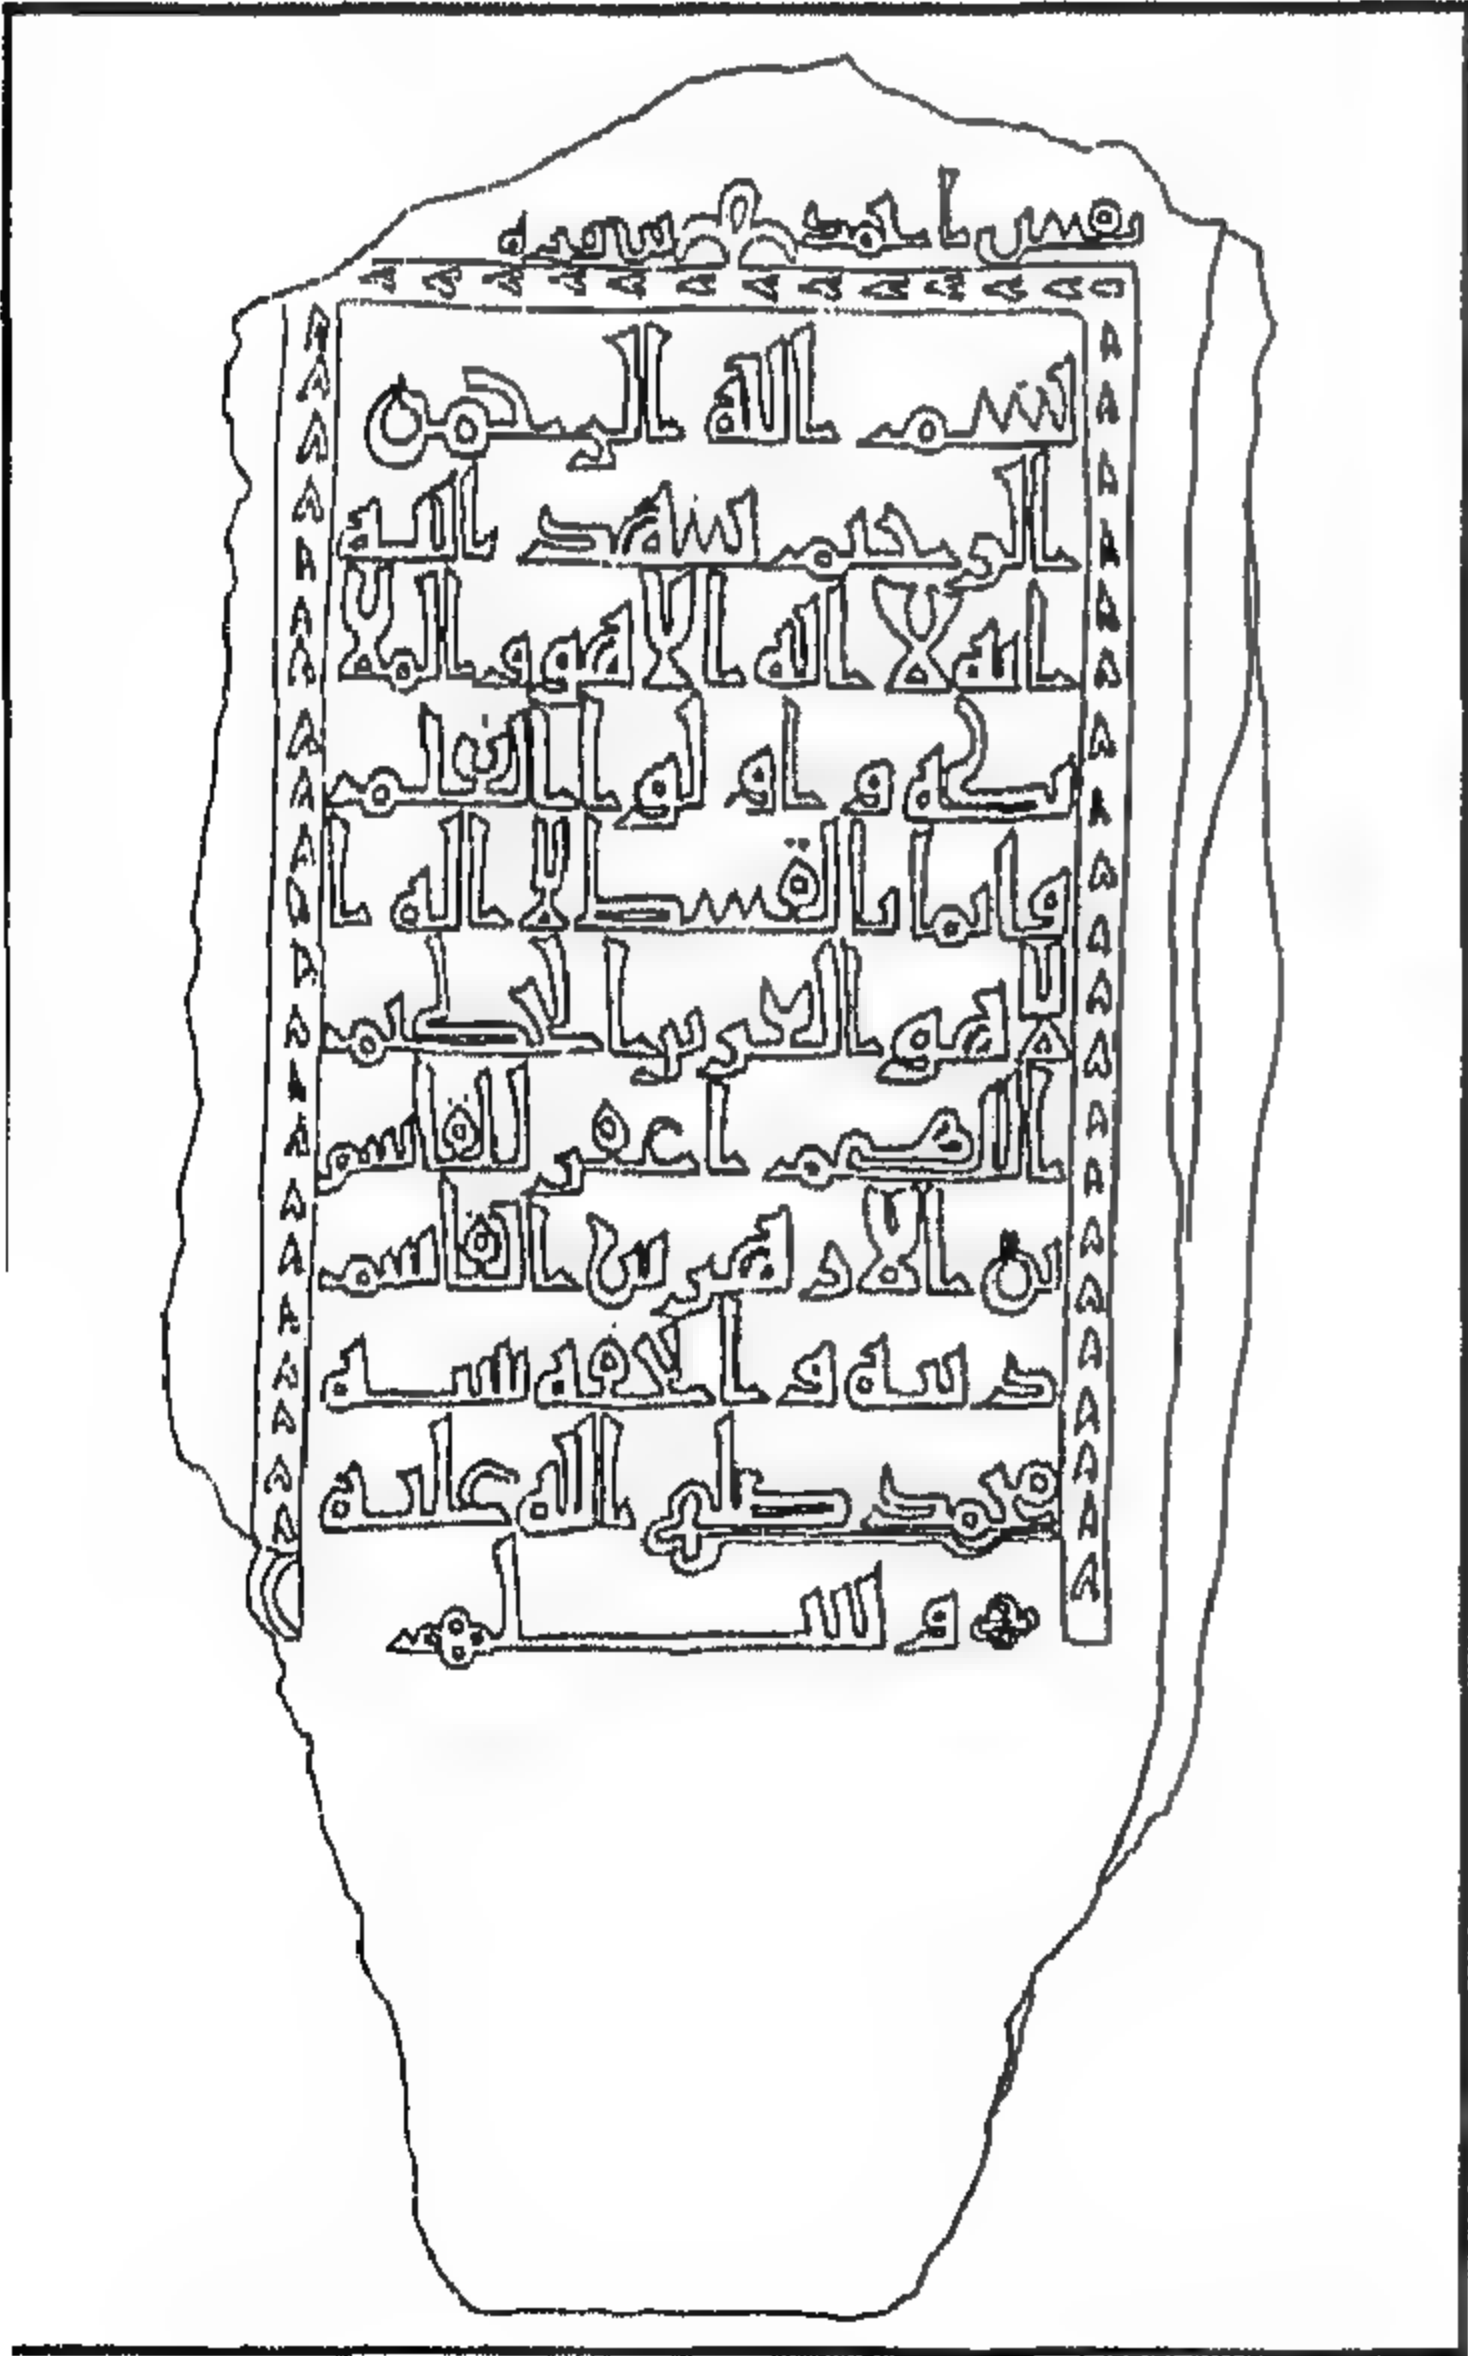 نقش احمد
بسم الله الرحمن
الرحيم شهد الله
انه لا اله الا هو والملا
ئكة و اولوا العلم
قائما بالقسط لا اله ا
لا هو العزيز الحكيم
اللهم اغفر للقاسم
بن الازهر بن القاسم
ذنبه و الحقه بنبيه
محمد صلى الله عليه
و سلم